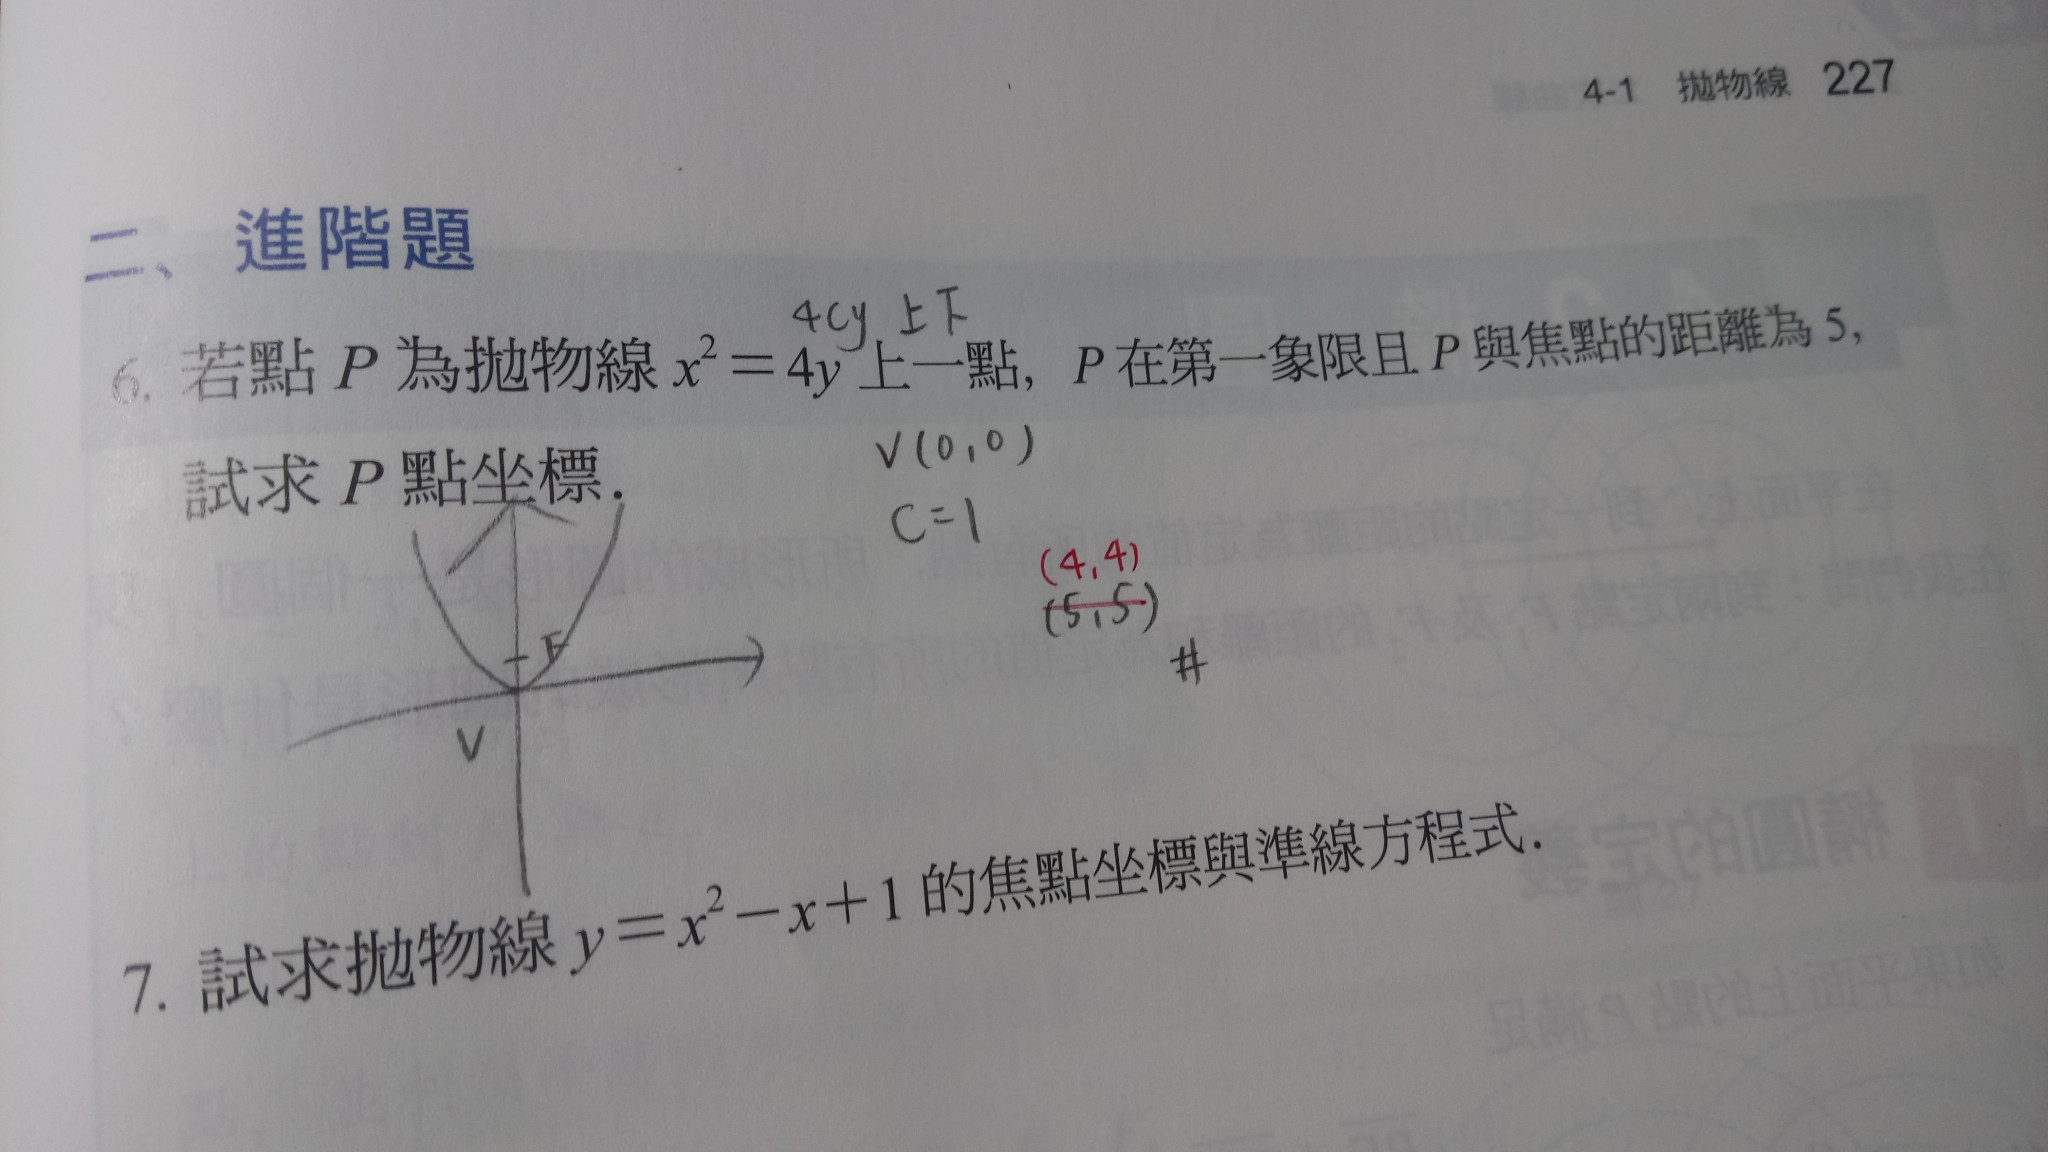 4-1 拋物線 227
二、進階題
4cy 上下
6. 若點 P 為拋物線 x² = 4y 上一點, P 在第一象限且 P 與焦點的距離為 5,
試求 P 點坐標.
V(0,0)
C=1
(4,4)
(5,5)
#
F
V
7. 試求拋物線 y = x² − x + 1 的焦點坐標與準線方程式.